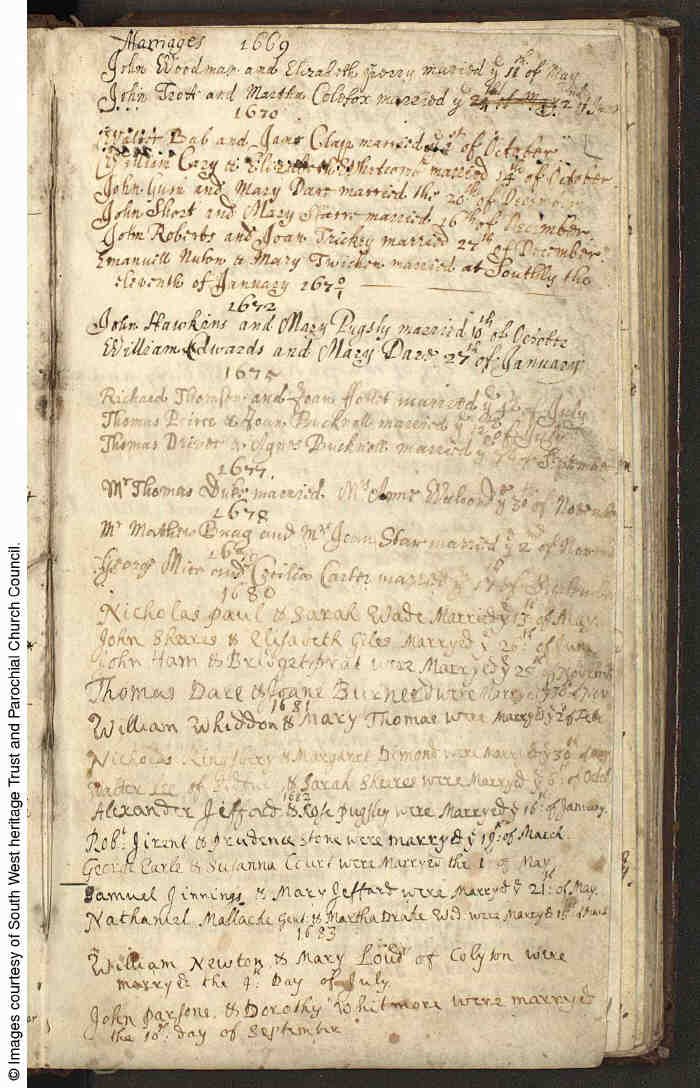 Marriages 1669
John Woodman and Elizabeth Perry maried ye 11th of May
John Trott and Martha Colefox married ye 24th of May 2nd of June
1670
Bab and Jane Clapp married ye of October
William Cary & Elizabeth married 14th of October
John Gum and Mary Dare married the 26th of December
John Short and Mary Starre married 16th of December
John Roberts and Joan Trickey married 27th of December
Emanuell Nuton & Mary Twicken married at Southly the
eleventh of January 167 0/1
1672
John Hawkins and Mary Pugsly married 10th of Octobr
William Edwards and Mary Dare 27th of January
1675
Richard Thomson and Joan married ye of July
Thomas Peirce & Joan Bucknoll married ye of July
Thomas Driver & Agnes Bucknoll married ye of September
1677
Mr Thomas Duke married Mrs Anne ye 30th of November
1678
Mr Mathew Brag and Mrs Joan Star married ye 2 of Novem
George Mire and Cecilia Carter married ye of September
1680
Nicholas Paul & Sarah Wade Marryed ye 13th of May
John Sheares & Elisabeth Giles Marryed ye 26th of June
John Ham & Bridget Prat were Marryed ye 25th of Novemb
Thomas Dare & Joane Burneed were Marryed ye of Nov
1681
William Whiddon & Mary Thomas were Marryed ye of Febr
Nicholas Kingsbery & Margaret Dimond were Marryed ye 30th of
Walter Lee of & Sarah Sheires were Marryed ye 6th of Octob
1682
Alexander Jefford & Rose Pugsley were Marryed ye 16th of January.
Robt: Jirent & Prudence Stone were marryed ye 19th of March.
George Earle & Susanna Court were Marryed the 1st of May
Samuel Jinnings & Mary Jefford were Marryed ye 21st of May.
Nathaniel Mallacke Gent: & Martha Drake Wid: were Marryed ye 18th
1683
William Newton & Mary Loud of Colyton were
marryed the Day of July.
John Parsons & Dorothy Whitmore were marryed
the 10th day of September
© Images courtesy of South West heritage Trust and Parochial Church Council.